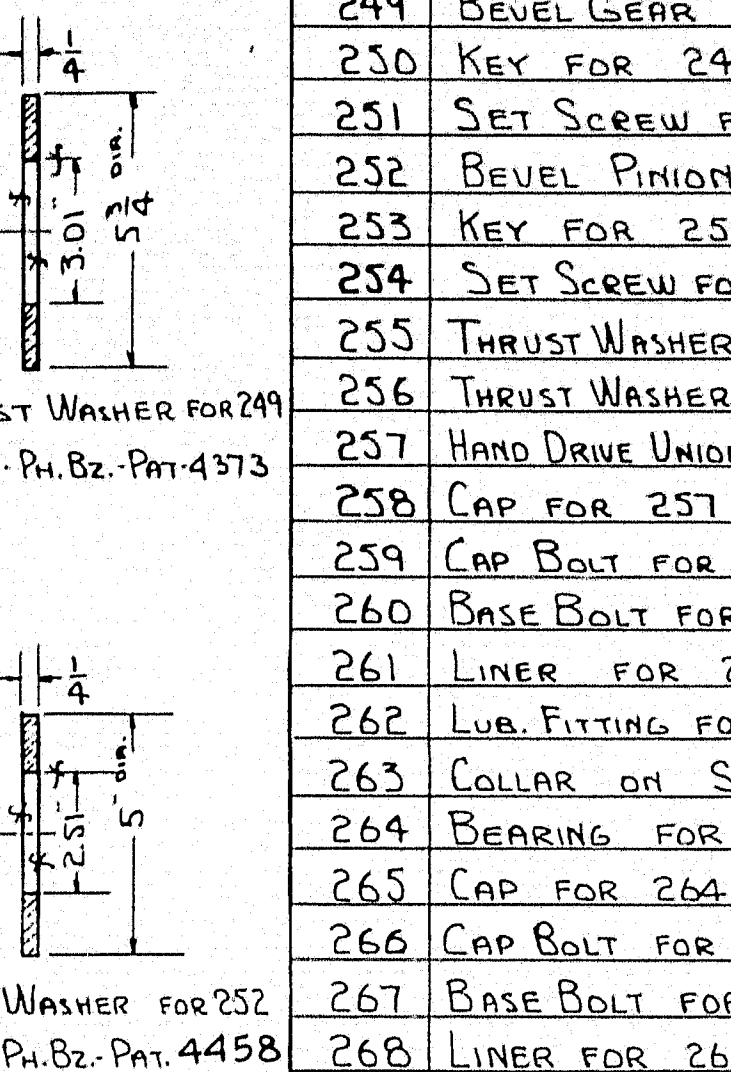 1/4
3.01"
5 3/4 DIA.
WASHER FOR 249
PH. BZ.-PAT-4373
1/4
2.51"
5" DIA.
WASHER FOR 252
PH. BZ.- PAT. 4458
249 BEVEL GEAR
250 KEY FOR 24
251 SET SCREW F
252 BEVEL PINION
253 KEY FOR 25
254 SET SCREW FO
255 THRUST WASHER
256 THRUST WASHER
257 HAND DRIVE UNIO
258 CAP FOR 257
259 CAP BOLT FOR
260 BASE BOLT FOR
261 LINER FOR 2
262 LUB. FITTING FO
263 COLLAR ON S
264 BEARING FOR
265 CAP FOR 264
266 CAP BOLT FOR
267 BASE BOLT FOR
268 LINER FOR 26